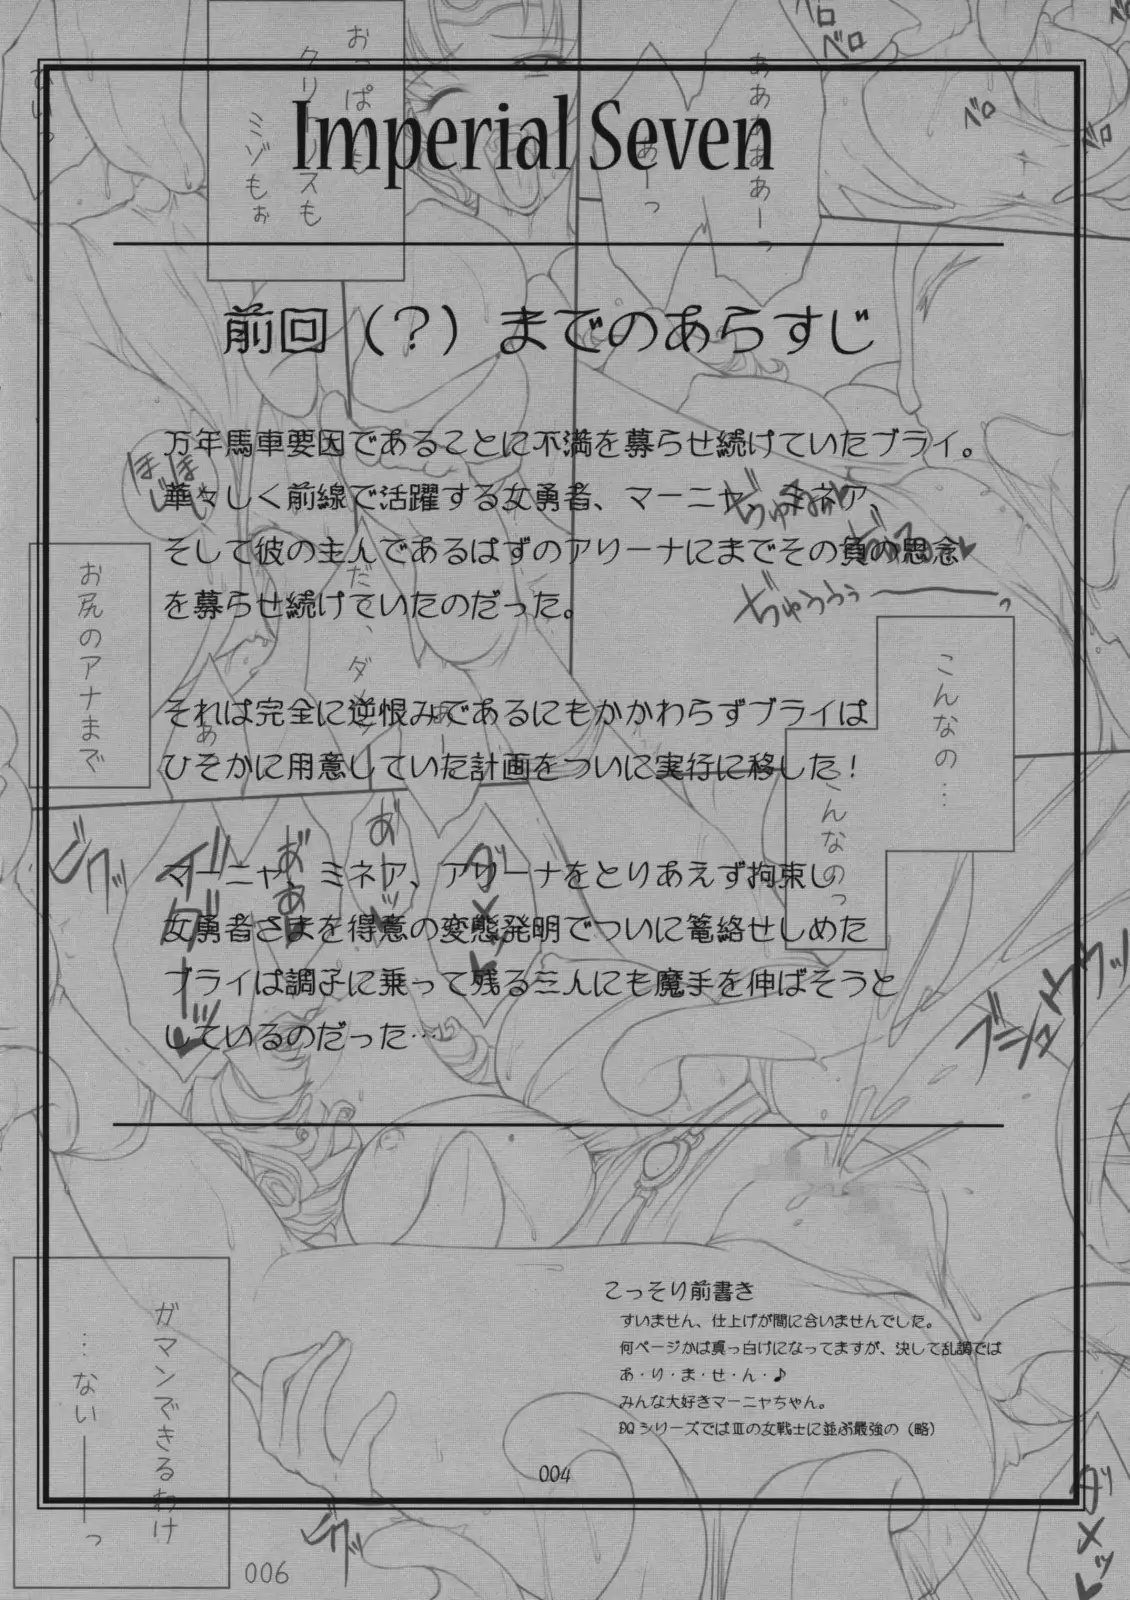 Imperial Seven
前回（？）までのあらすじ
万年馬車要因であることに不満を募らせ続けていたブライ。
華々しく前線で活躍する女勇者、マーニャ、ミネア、
そして彼の主人であるはずのアリーナにまでその負の思念
を募らせ続けていたのだった。
それは完全に逆恨みであるにもかかわらずブライは
ひそかに用意していた計画をついに実行に移した！
マーニャ、ミネア、アリーナをとりあえず拘束し
女勇者さまを得意の変態発明でついに篭絡せしめた
ブライは調子に乗って残る三人にも魔手を伸ばそうと
しているのだった…
こっそり前書き
すいません、仕上げが間に合いませんでした。
何ページかは真っ白けになってますが、決して乱調では
あ・り・ま・せ・ん・♪
みんな大好きマーニャちゃん。
DQシリーズではⅢの女戦士に並ぶ最強の（略）
004
お尻のアナまで
こんなの…
こんなのっ
ガマンできるわけ
…ない――っ
006